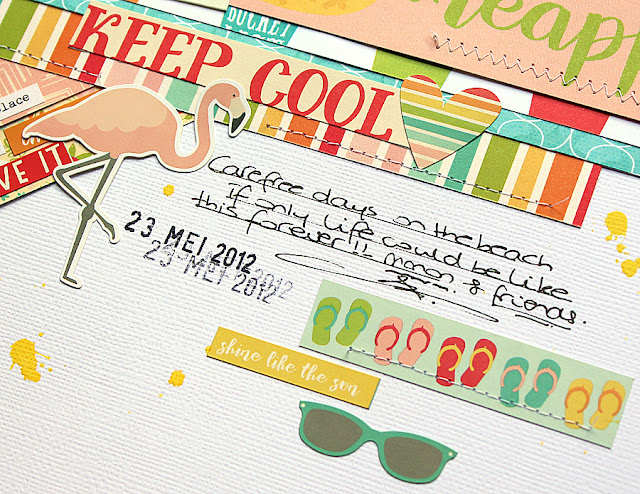 BUCKET
neapp
KEEP COOL
place
VE IT!
Carefree days on the beach
If only life could be like
this forever !! & friends.
23 MEI 2012
23 MEI 2012
shine like the sun